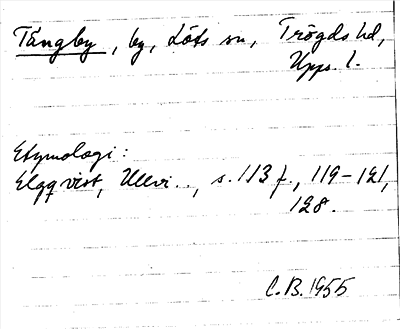 Tångby, by, Löts sn, Trögds hd,
Upps. l.
Etymologi:
Elgqvist, Ullvi.., s. 113 f., 119-121,
128.
C.B. 1955